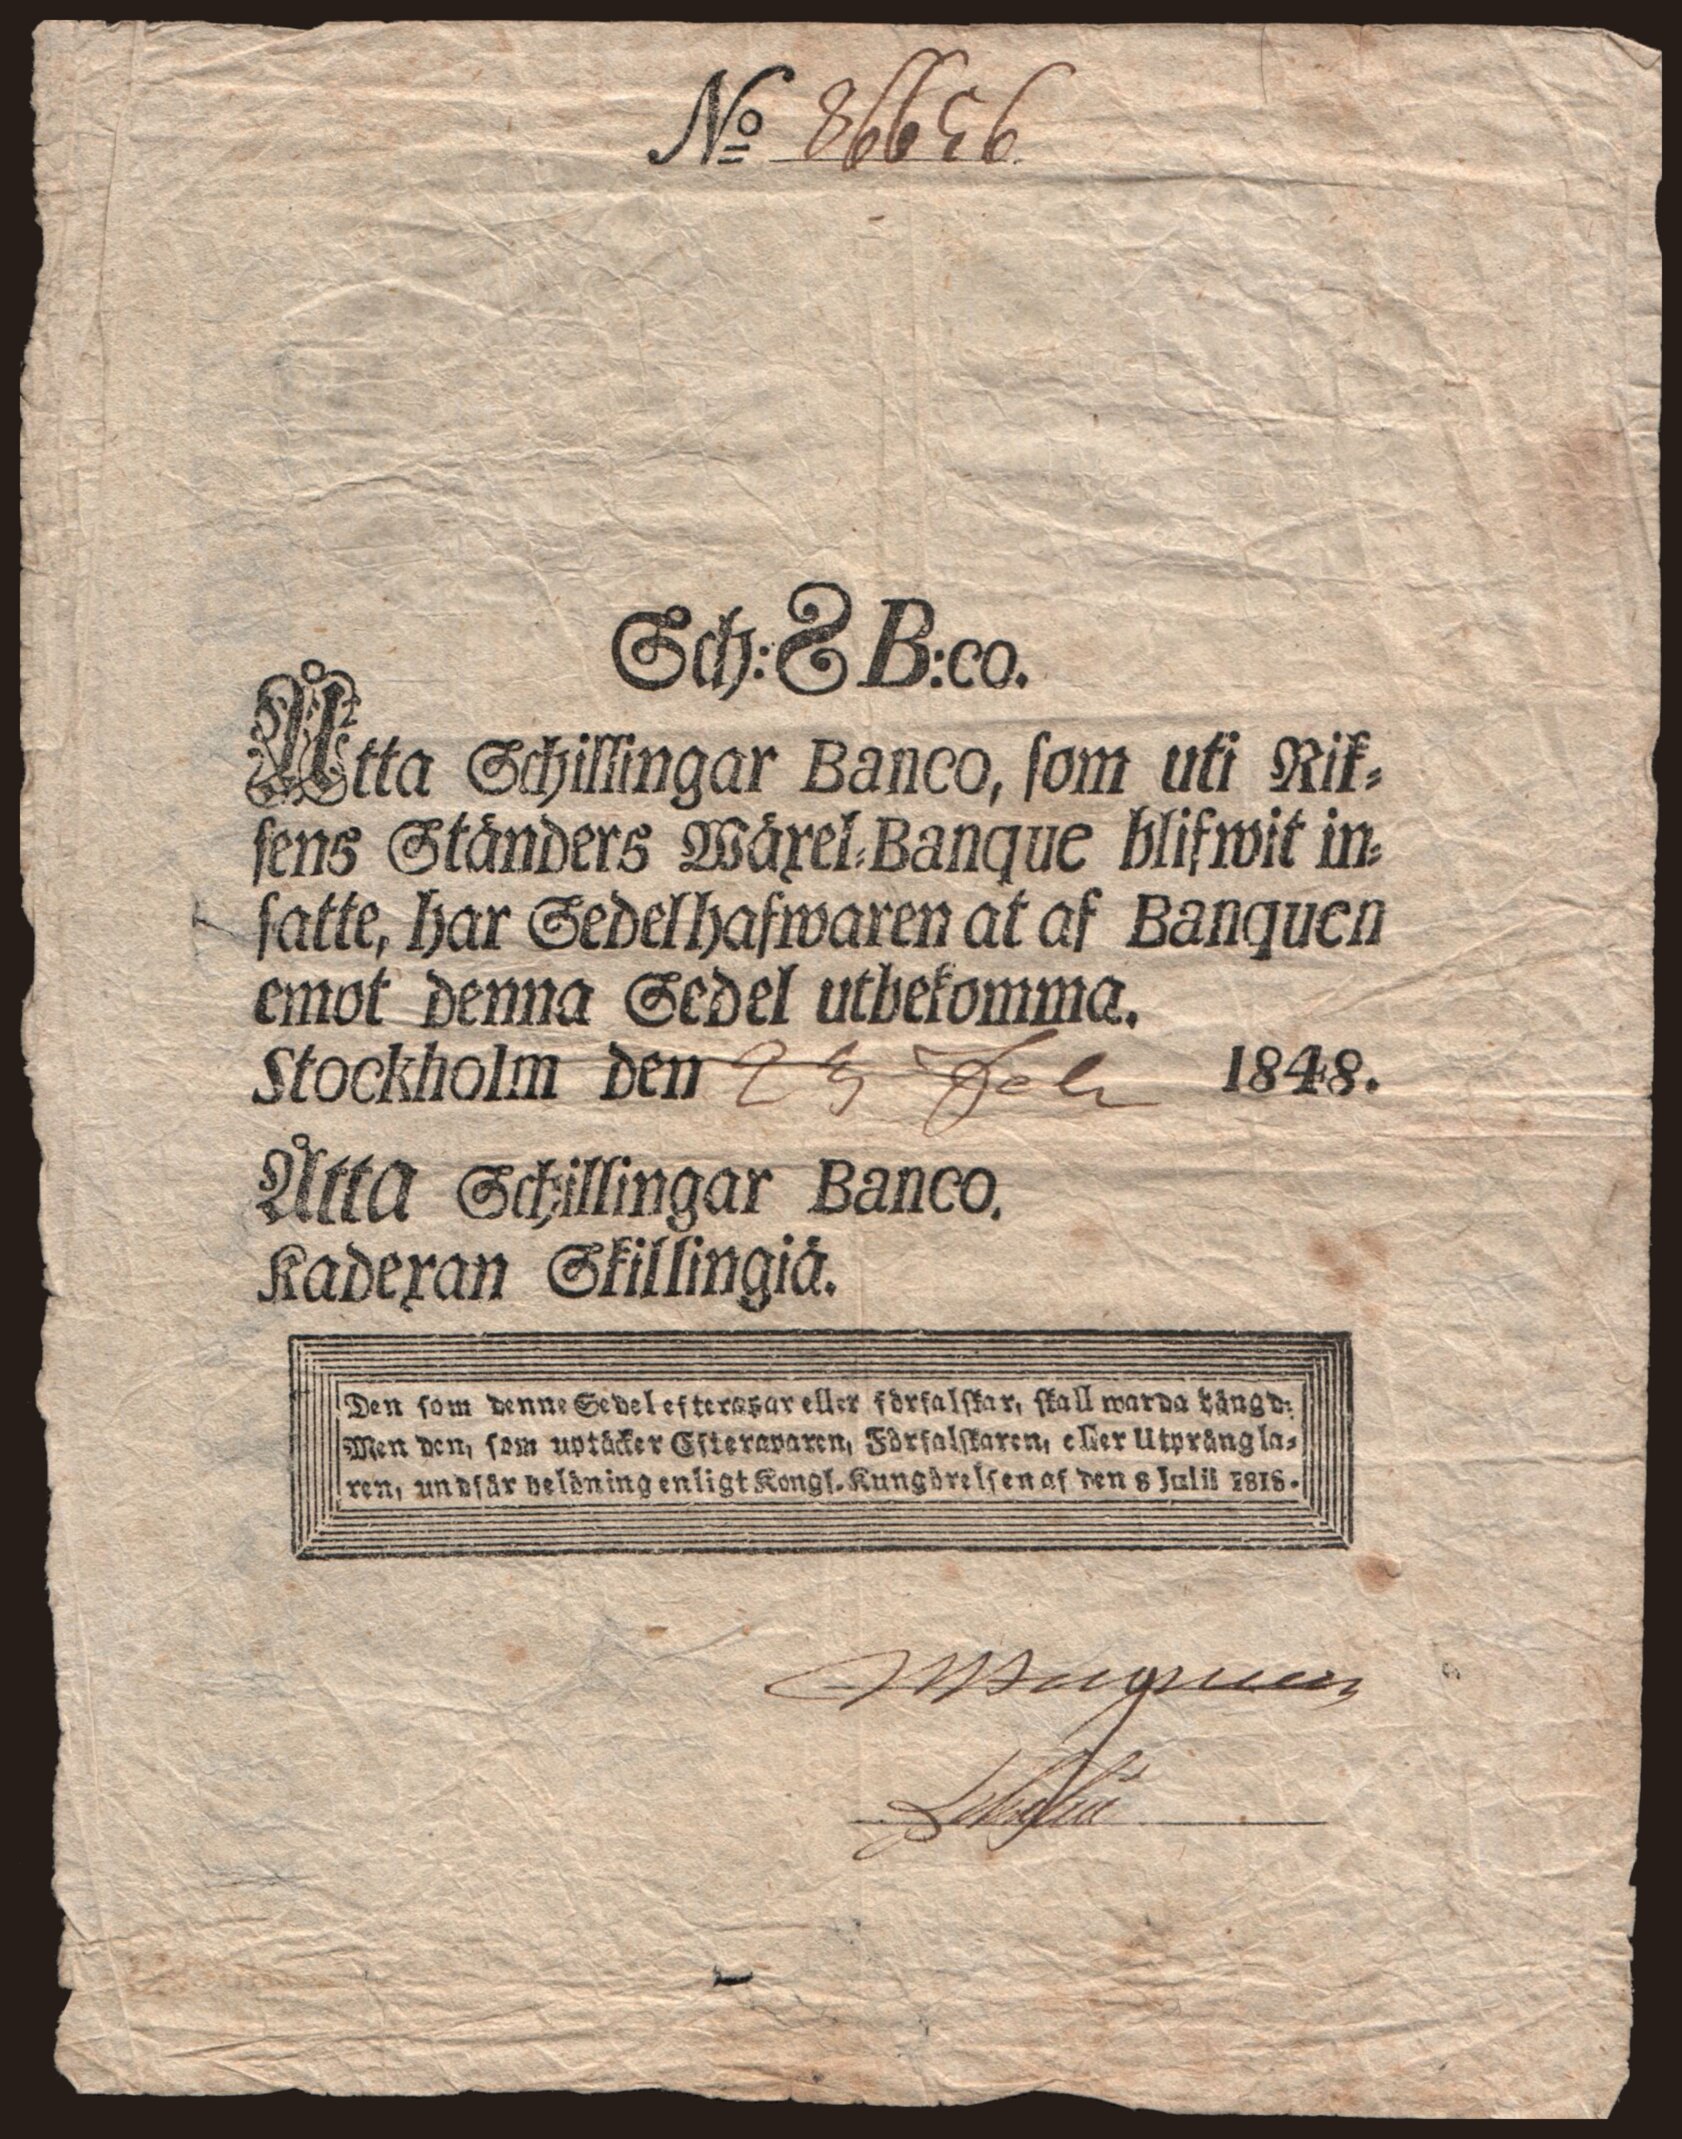 No 86656
Sch: 8 B:co.
Åtta Schillingar Banco, som uti Rik=
sens Ständers Wäxel=Banque blifwit in=
satte, har Sedelhafwaren at af Banquen
emot denna Sedel utbekomma.
Stockholm den 25 Feb 1848.
Åtta Schillingar Banco.
Kadexan Skillingiä.
Den som denne Sedel efterapar eller förfalskar, skall warda hängd:
Men den, som uptäcker Efteraparen, Förfalskaren, eller Utprångla=
ren, undfår belöning enligt Kongl. Kungörelsen af den 8 Julii 1818.